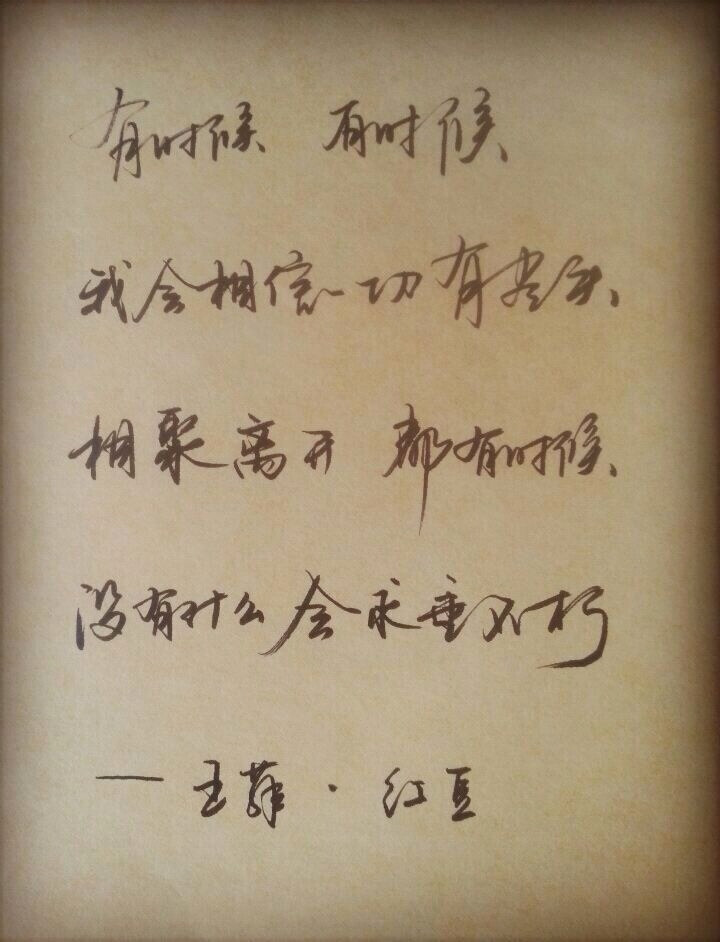 有时候 有时候
我会相信一切有尽头
相聚离开 都有时候
没有什么会永垂不朽
—王菲·红豆